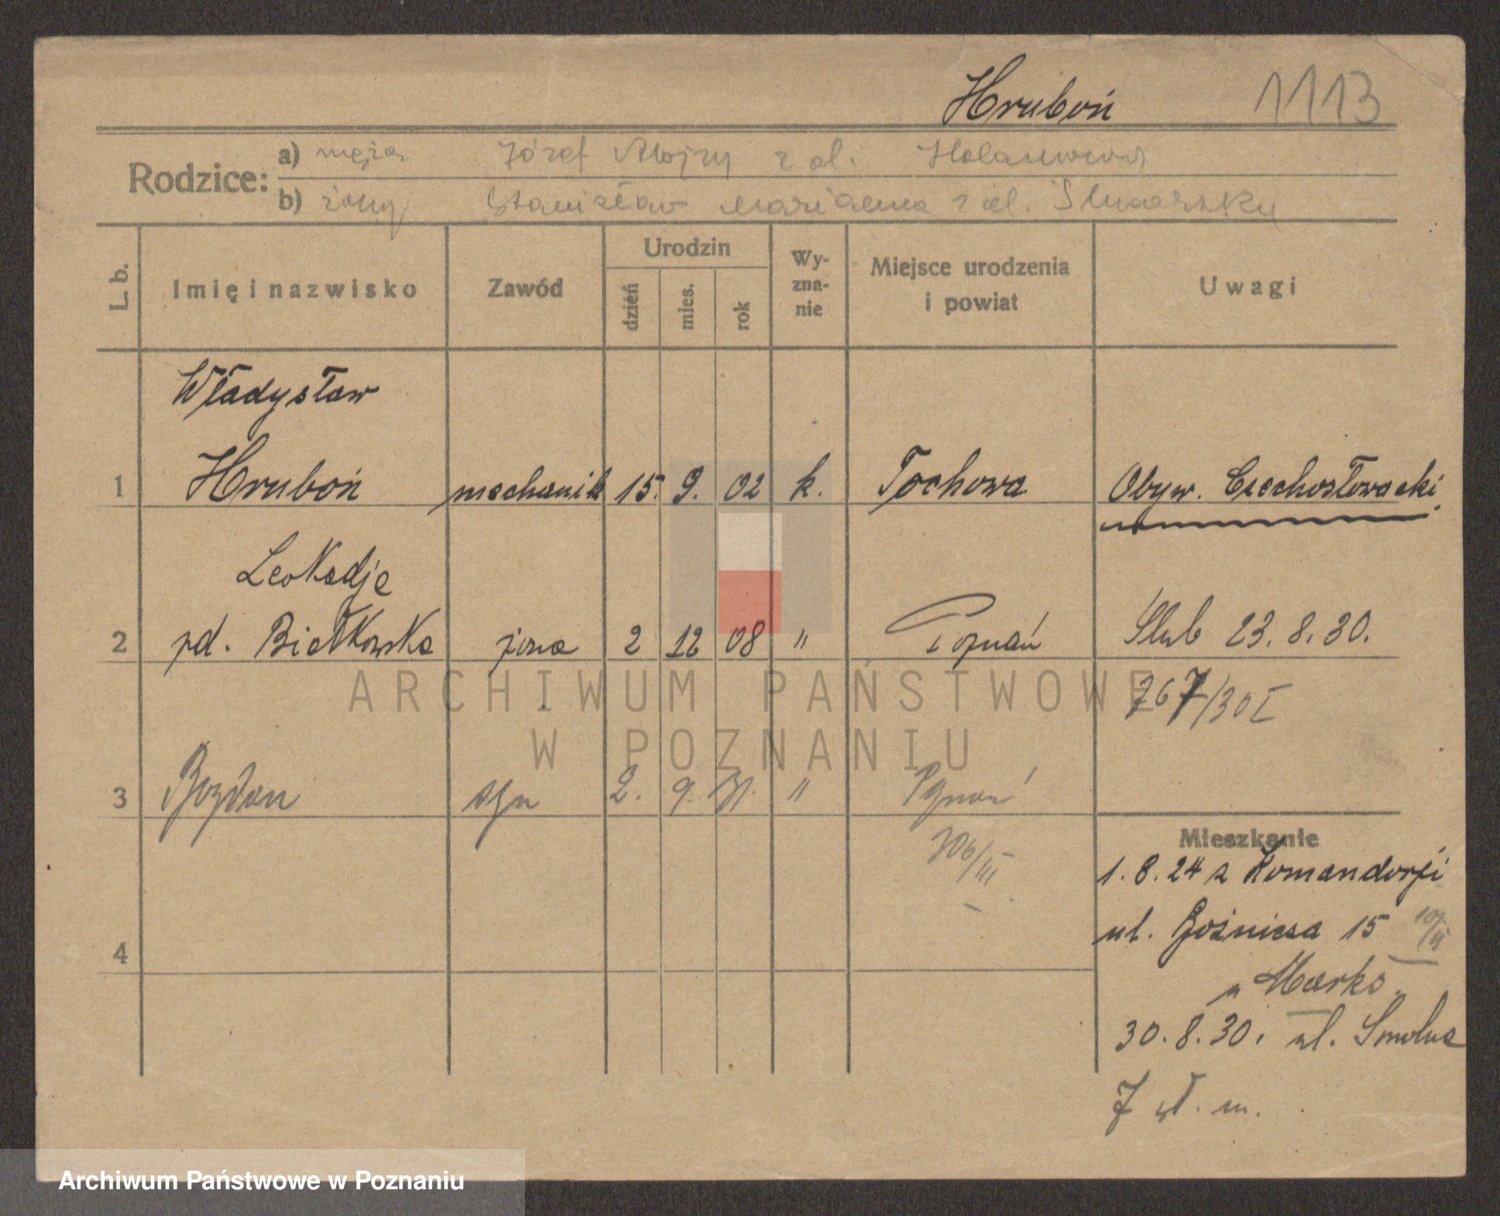 Hruboń 1113
Rodzice:
a) męża Józef Alojzy z d. Holauwowa
b) żony Stanisław Marianna z d. Ślusarska
L. b. Imię i nazwisko Zawód Urodzin Wy-zna-nie Miejsce urodzenia i powiat Uwagi
dzień mies. rok
Władysław
1 Hruboń mechanik 15. 9. 02 k. Tochowa Obyw. Czechosłowacki
Leokadja
2 zd. Białkowska żona 2 12 08 " Poznań Ślub 23.8.30.
267/30 I
3 Bozdan syn 2. 9. 31. " Poznań
706/III
4
Mieszkanie
1.8.24 z Komandorji
ul. Bóżnicza 15
" Marko
30.8.30. ul. Smolna
7 wł. m.
ARCHIWUM PAŃSTWOWE
W POZNANIU
Archiwum Państwowe w Poznaniu